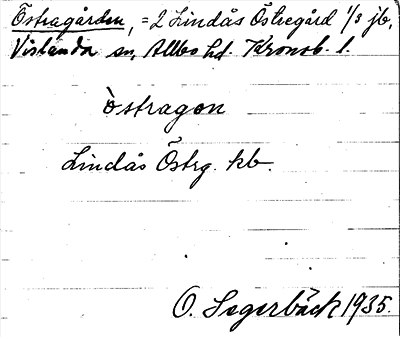 Östragården, = 2 Lindås Östregård 1/8 jb,
Vislanda sn, Allbo hd. Kronob. l.
òstragon
Lindås Östrg. kb.
O. Segerbäck 1935.